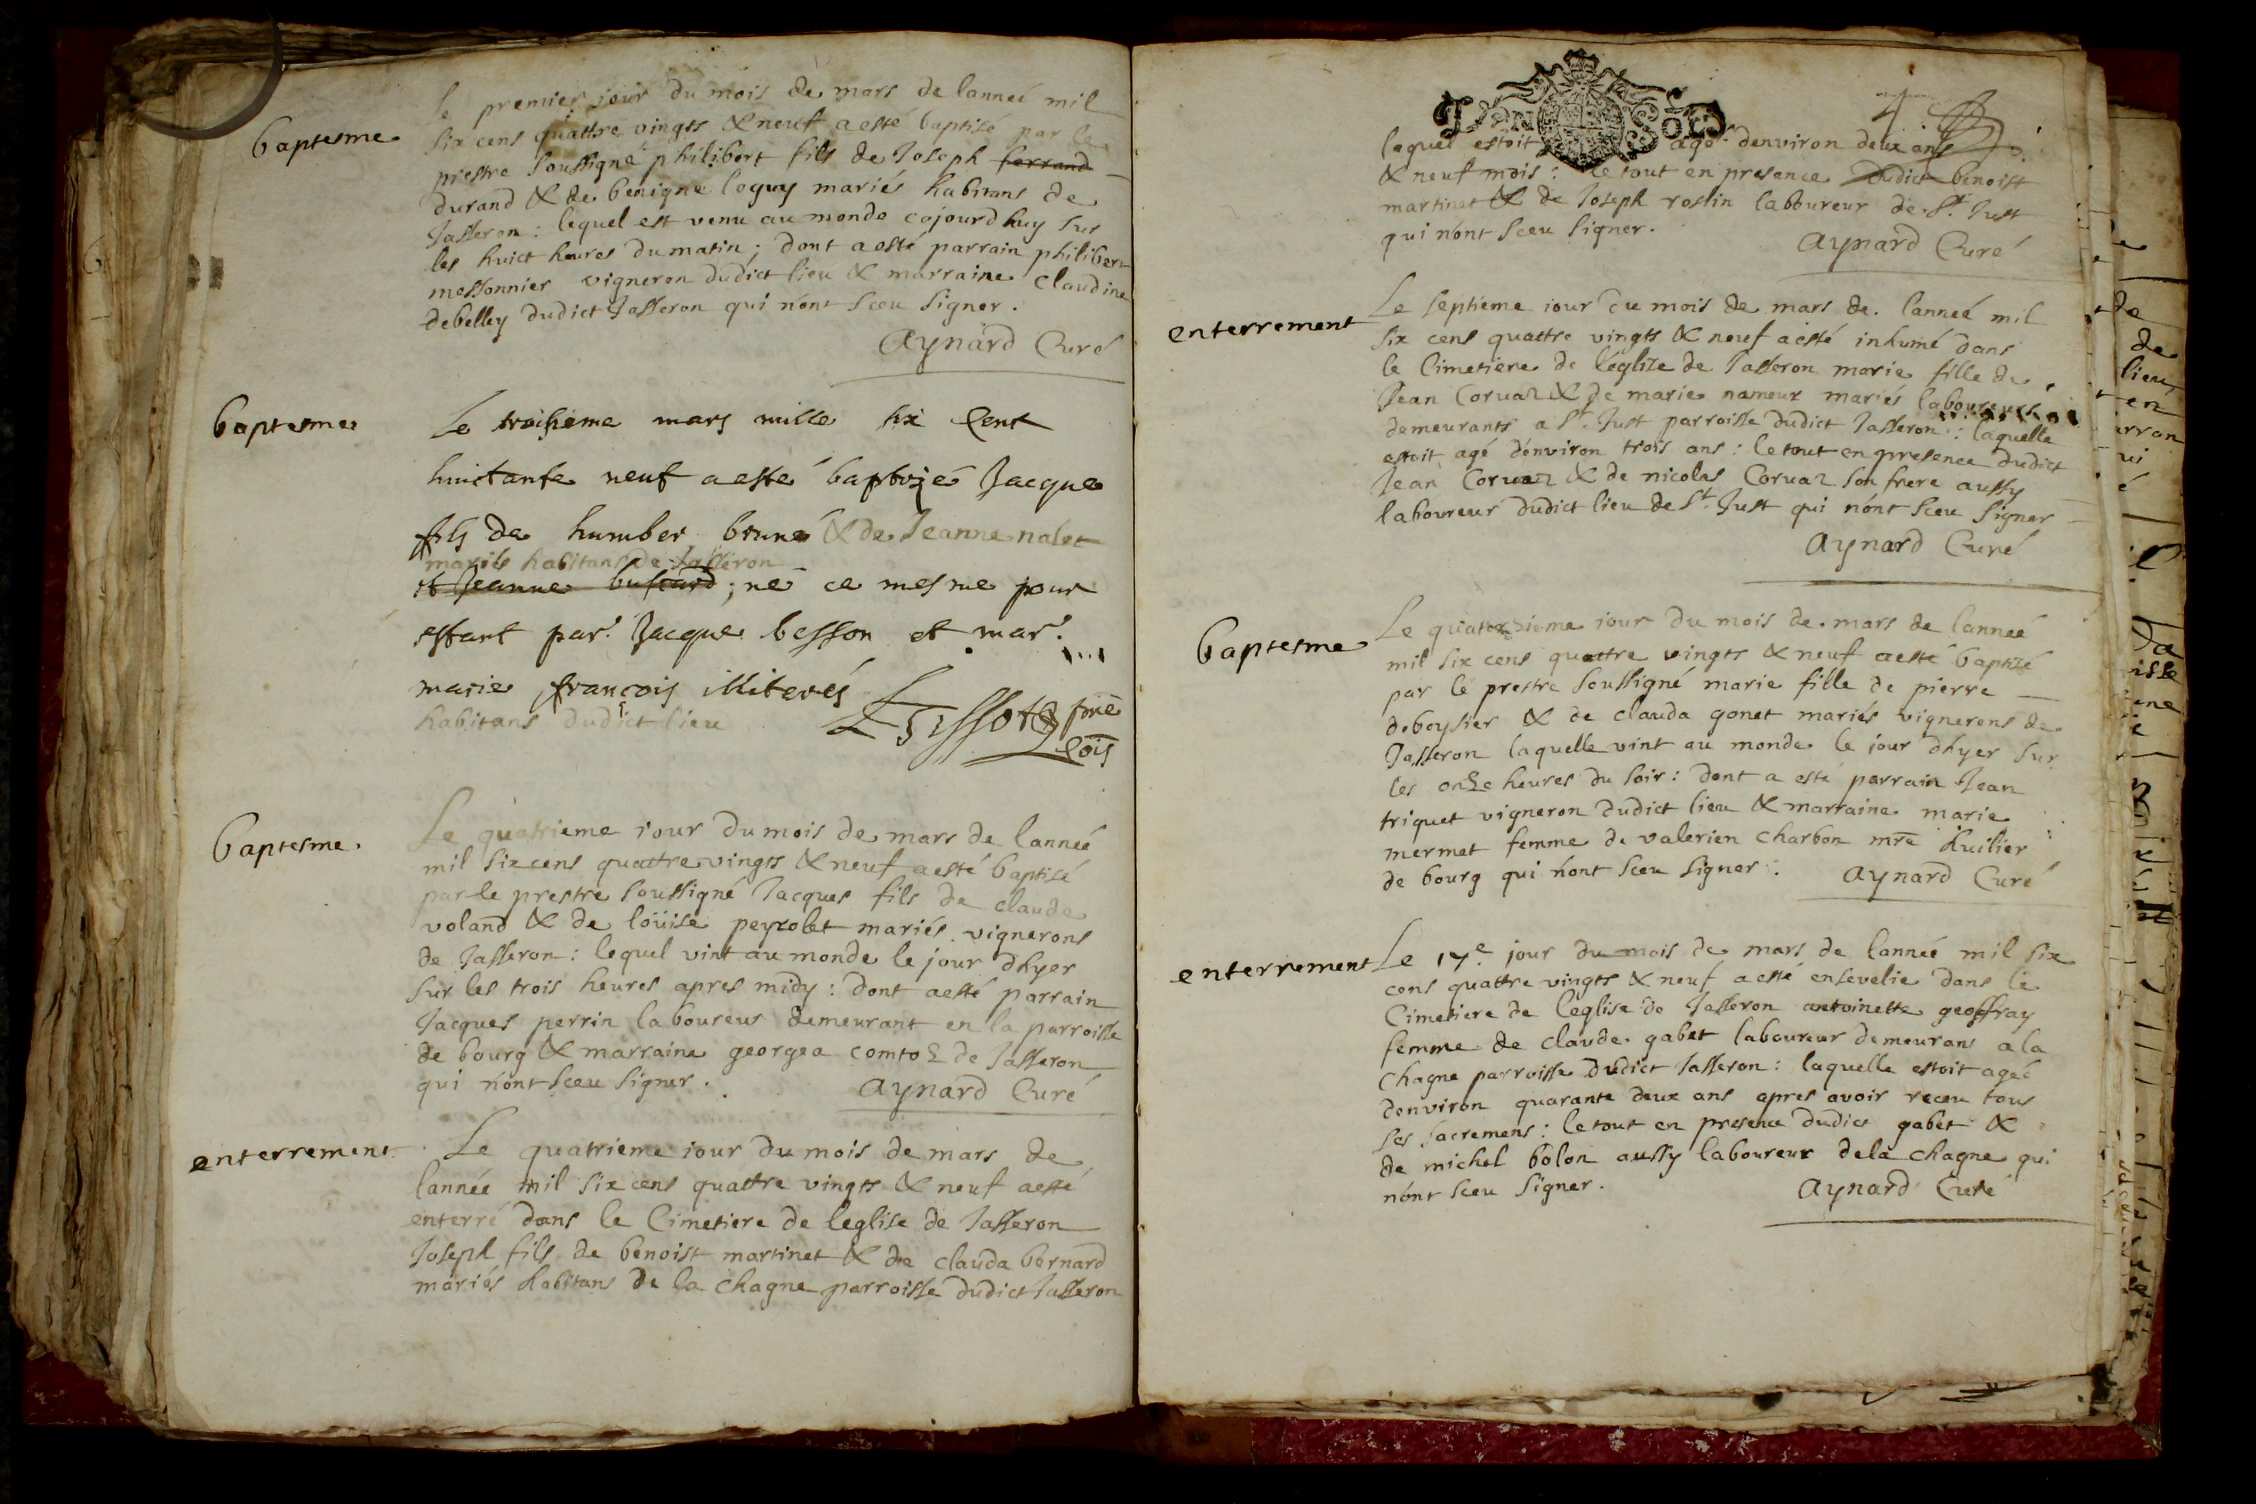 baptesme
le premier jour du mois de mars de lanneé mil
six cens quattre vingts & neuf a esté baptisé par le
prestre soussigné philibert fils de Joseph ferrand
durand & de benigne loguy mariés habitans de
Jasseron : lequel est venu au monde cejourdhuy sur
les huict heures du matin ; dont a esté parrain philibert
messonnier vigneron dudict lieu & marraine claudine
debelley dudict Jasseron qui n'ont sceu signer .
Aynard Curé
baptesme
Le troisieme mars mille six Cent
huictante neuf a esté baptizé Jacque
fils de humber brune & de Jeanne nalet
mariés habitans de Jasseron
et Jeanne ; né ce mesme jour
estant par. Jacque besson et mar.
marie françois illiterés
habitans dudict lieu
Tissot
baptesme.
Le quatrieme iour du mois de mars de lanneé
mil six cens quattre vingts & neuf a esté baptisé
par le prestre soussigné Jacques fils de claude
voland & de loüise peyrolet mariés vignerons
de Jasseron : lequel vint au monde le jour dhyer
sur les trois heures apres midy : dont a esté parrain
Jacques perrin laboureur demeurant en la parroisse
de bourg & marraine georgea comtoz de Jasseron
qui n'ont sceu signer .
Aynard Curé
enterrement.
Le quatrieme iour du mois de mars de
lannée mil six cens quattre vingts & neuf a esté
enterré dans le Cimetiere de leglise de Jasseron
Joseph fils de benoist martinet & de clauda bernard
mariés habitans de la chagne parroisse dudict Jasseron
4
lequel estoit agé denviron deux ans
& neuf mois : le tout en presence dudict benoist
martinet & de Joseph roslin laboureur de St Just
qui n'ont sceu signer .
Aynard Curé
enterrement
Le septieme iour du mois de mars de lanneé mil
six cens quattre vingts & neuf a esté inhumé dans
le Cimetiere de leglise de Jasseron marie fille de
Jean Corvaz & de marie nameur mariés laboureurs
demeurants a St Just parroisse dudict Jasseron : laquelle
estoit agé d'environ trois ans : le tout en presence dudict
Jean Corvaz & de nicolas Corvaz son frere aussy
laboureur dudict lieu de St Just qui n'ont sceu signer
Aynard Curé
baptesme
Le quatorzieme iour du mois de mars de lanneé
mil six cens quattre vingts & neuf a esté baptizé
par le prestre soussigné marie fille de pierre
deboysier & de clauda gonet mariés vignerons de
Jasseron laquelle vint au monde le jour dhyer sur
les onze heures du soir : dont a esté parrain Jean
triquet vigneron dudict lieu & marraine marie
mermet femme de valerien charbon mre huilier
de bourg qui n'ont sceu signer :
Aynard Curé
enterrement
Le 17e jour du mois de mars de lanneé mil six
cens quattre vingts & neuf a esté ensevelie dans le
Cimetiere de leglise de Jasseron antoinette geoffray
femme de claude gabet laboureur demeurans a la
Chagne parroisse dudict Jasseron : laquelle estoit ageé
denviron quarante deux ans apres avoir receu tous
ses sacremens : le tout en presence dudict gabet &
de michel bolon aussy laboureur dela chagne qui
n'ont sceu signer .
Aynard Curé